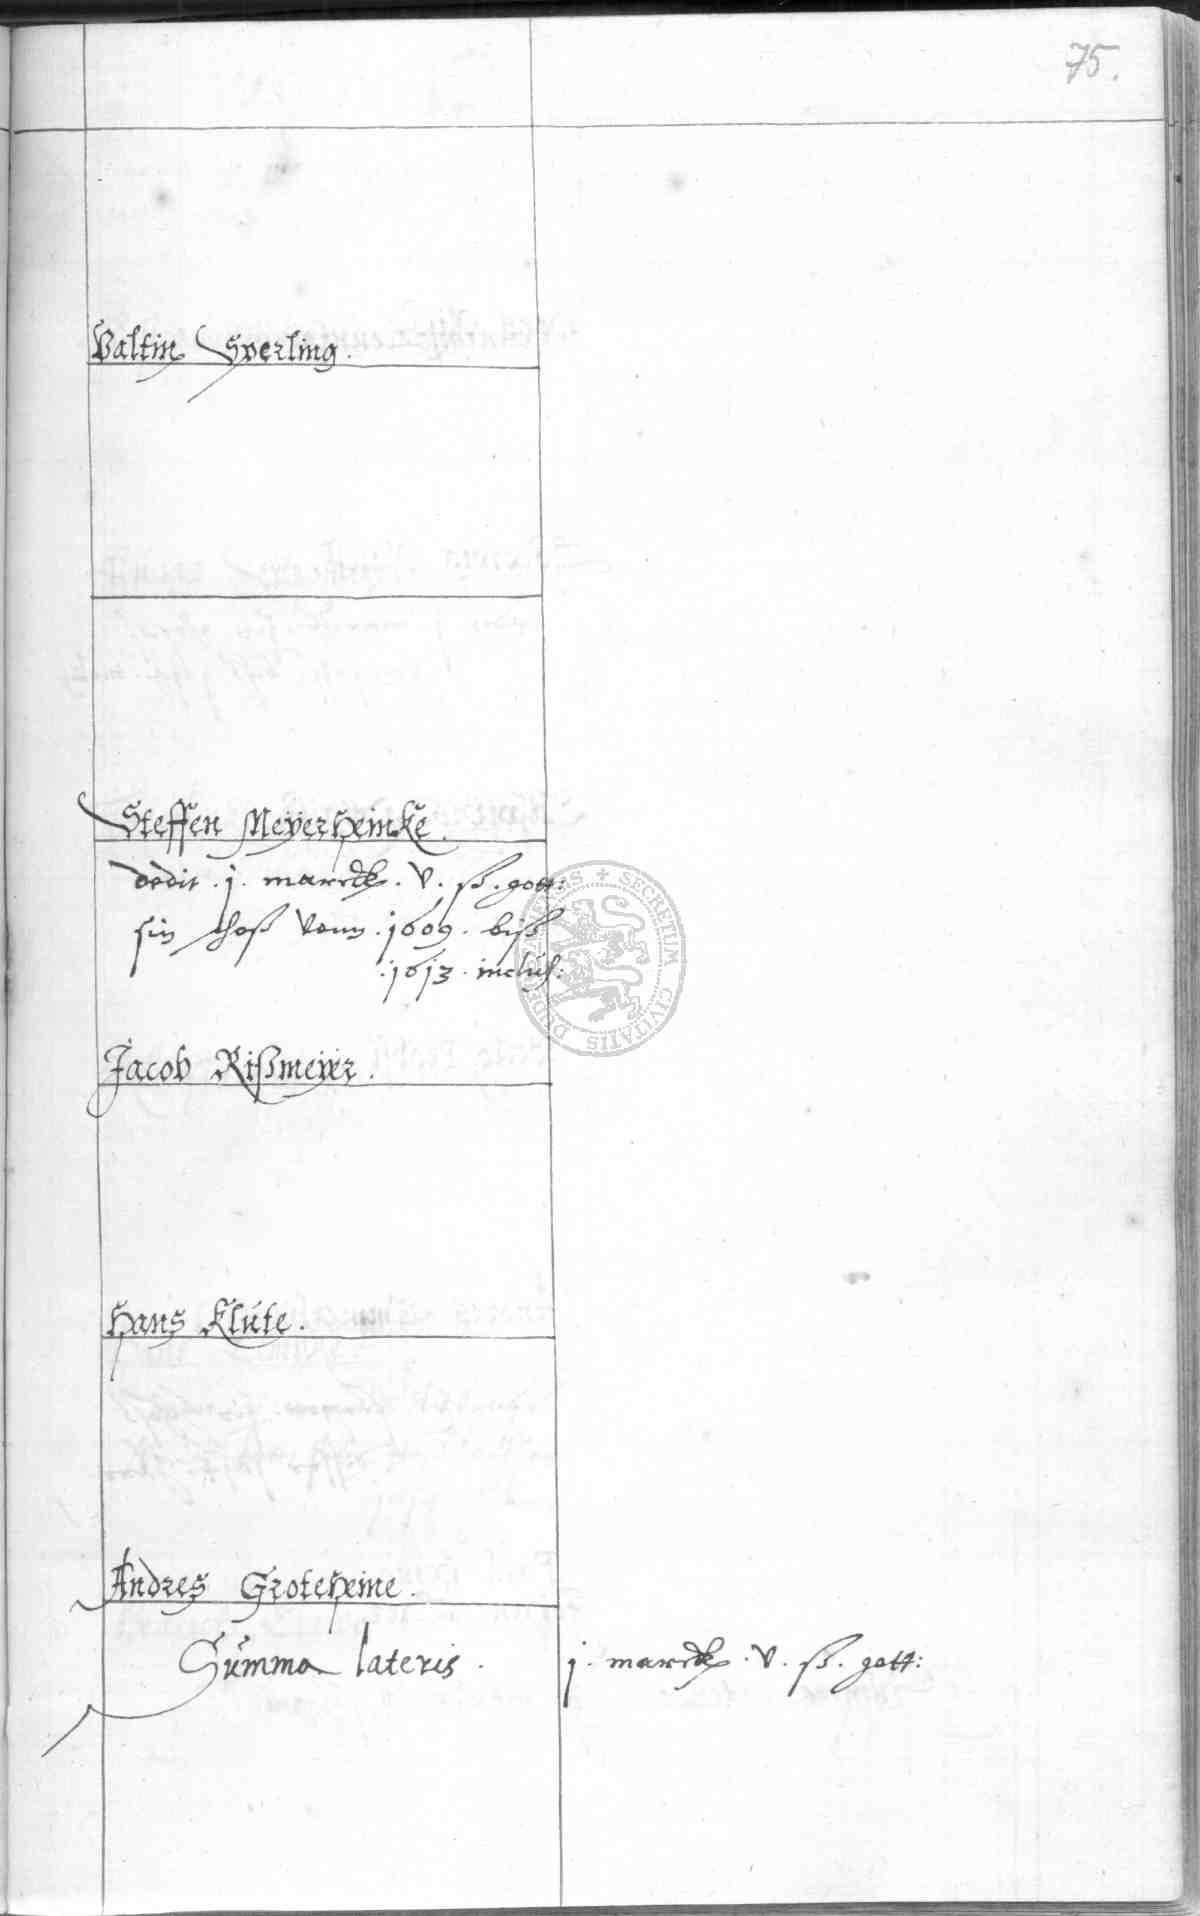 75.
Valtin Sperling.
Steffen Meÿerheinke.
dedit . j . marck . v . ß . gott:
sin schoß vonn . 1609 . biß
. 1613 . inclus:
SECRETUM CIVITATIS DUDERSTADENSIS
Jacob Rißmeÿer.
Hans Klute.
Andres Groteheine.
Summa lateris . j . marck . v . ß . gott: